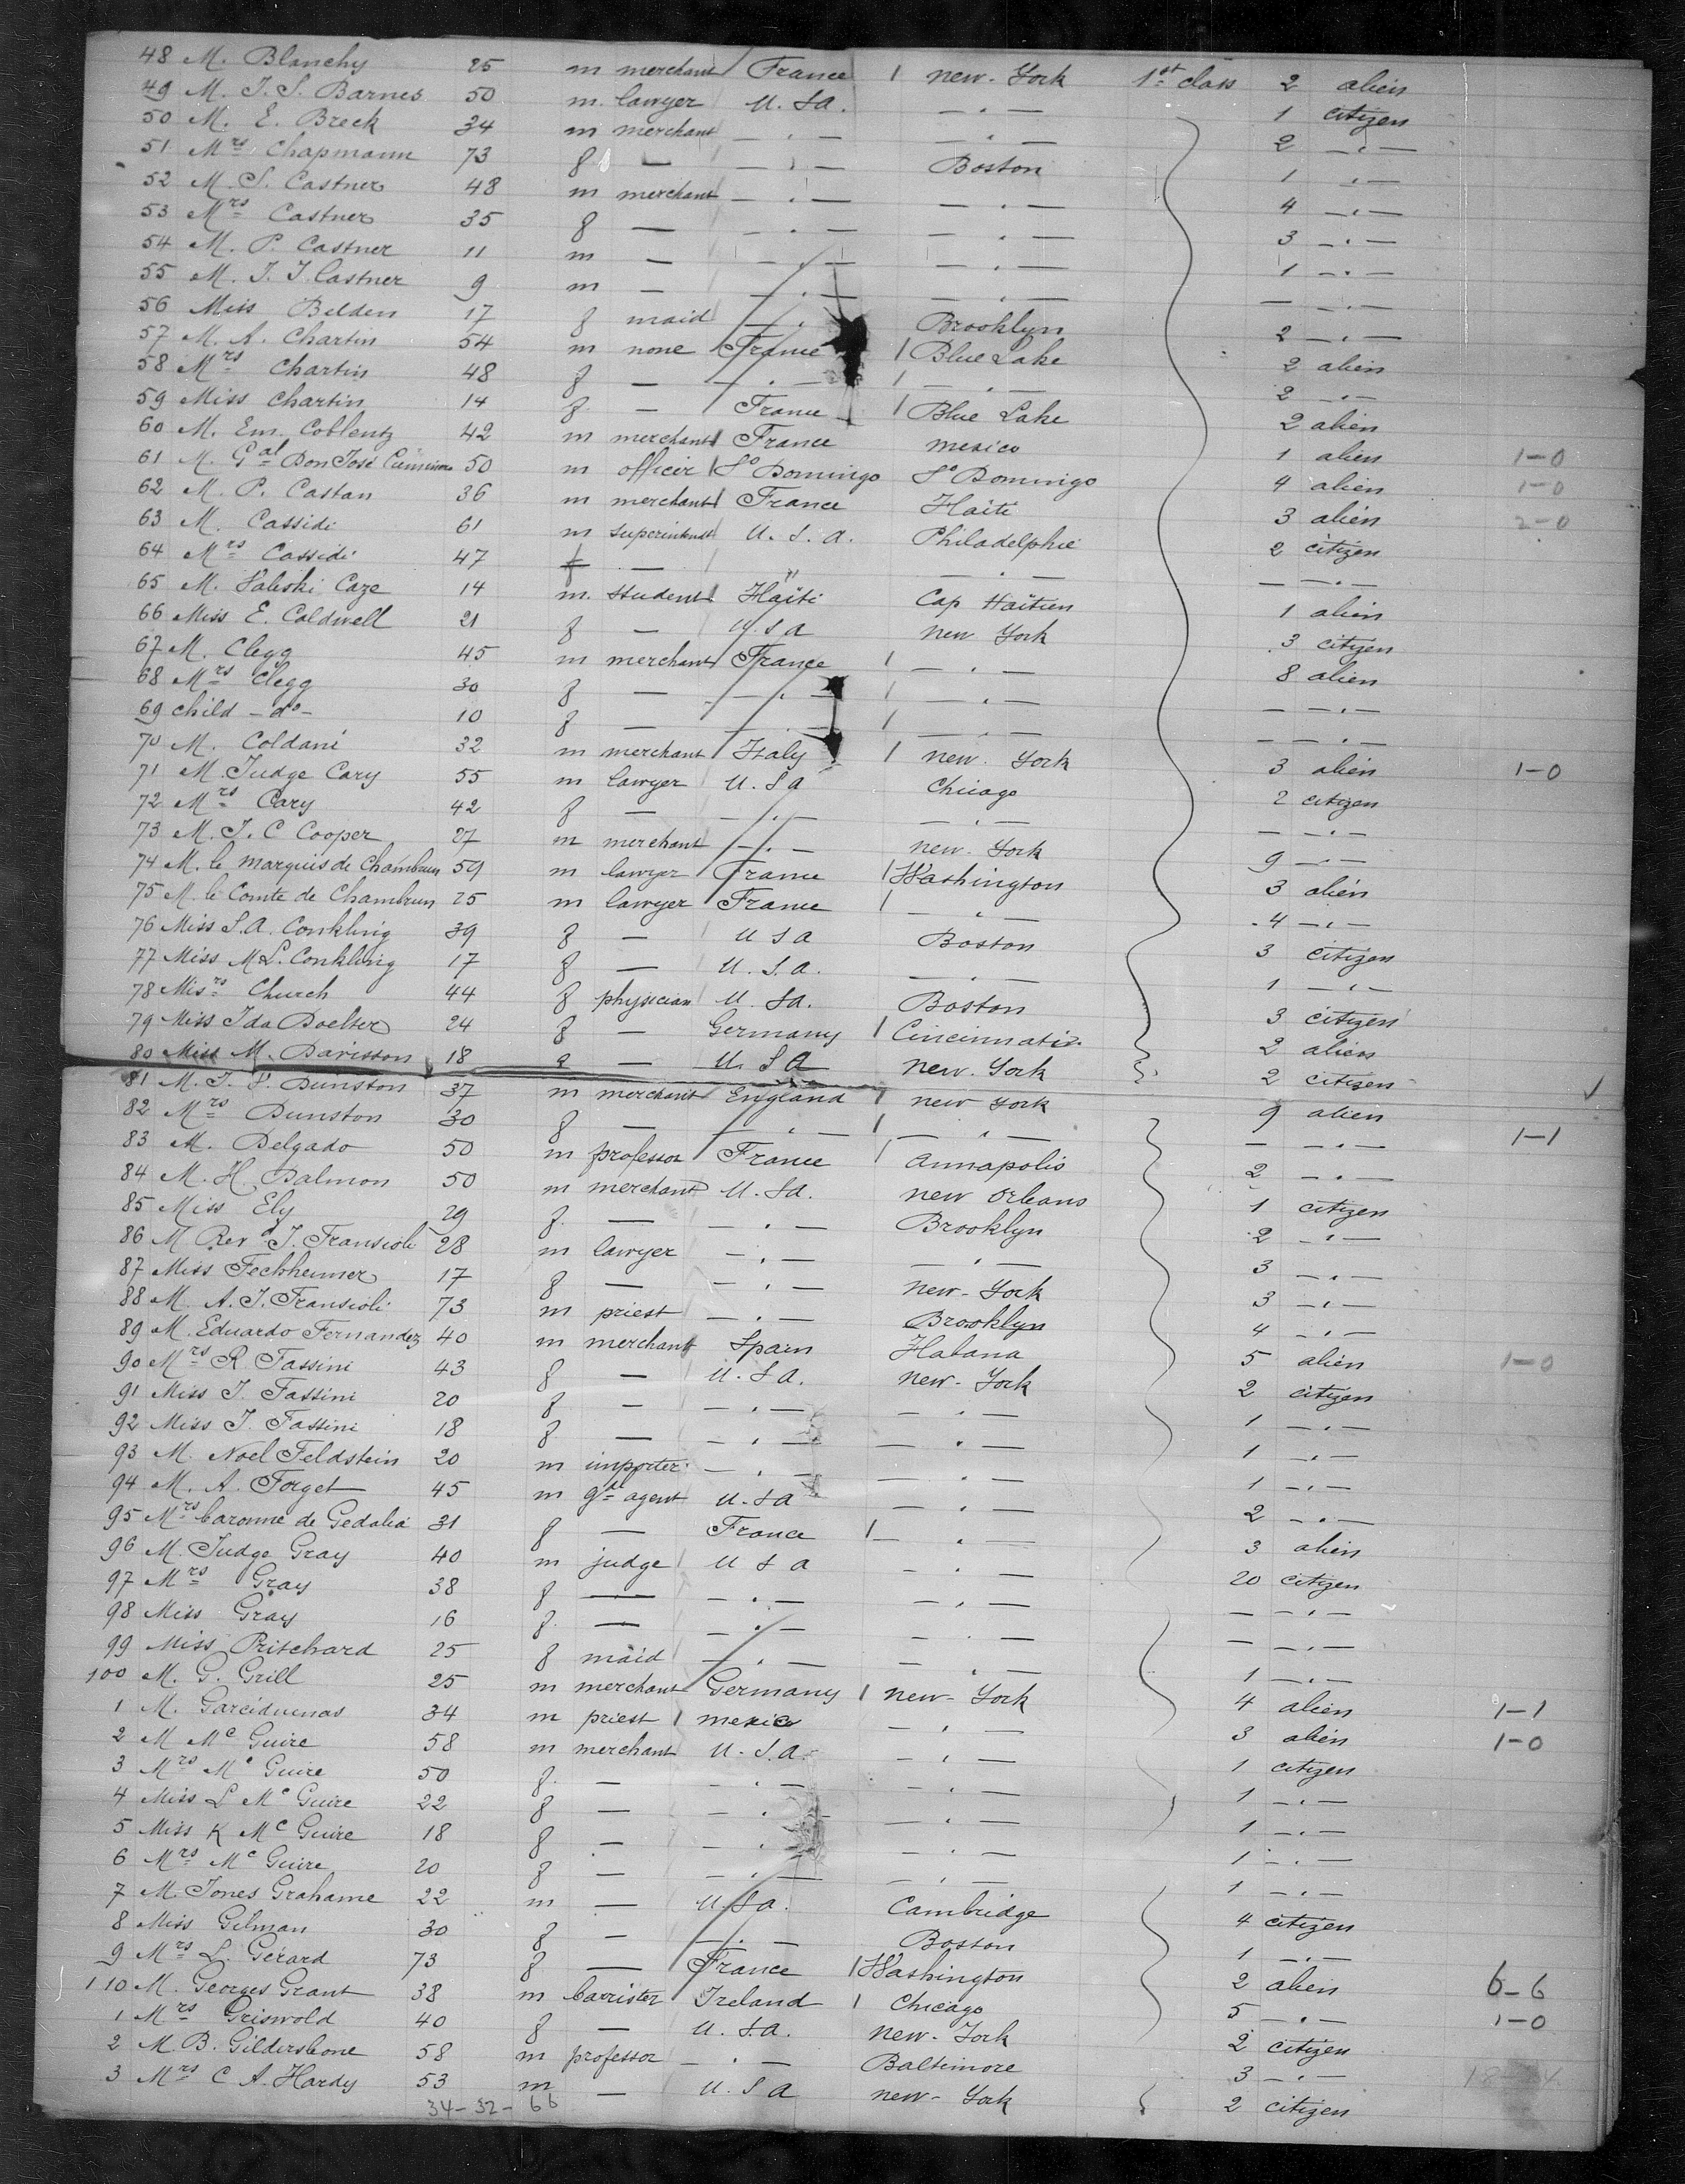 48 M. Blanchy 25 m merchant France 1 new-York 1st class 2 alien
49 M. J. S. Barnes 50 m. lawyer U. Sa. — . — 1 citizen
50 M. E. Breck 34 m merchant — . — — . — 2 — . —
51 Mrs Chapmann 73 f — — . — Boston 1 — . —
52 M. S. Castner 48 m merchant — . — — . — 4 — . —
53 Mrs Castner 35 f — — . — — . — 3 — . —
54 M. P. Castner 11 m — — . — — . — 1 — . —
55 M. J. J. Castner 9 m — — . — — . — — — . —
56 Miss Belden 17 f maid — . — Brooklyn 2 — . —
57 M. A. Chartin 54 m none France 1 Blue Lake 2 alien
58 Mrs Chartin 48 f — — . — 1 — . — 2 — . —
59 Miss Chartin 14 f. — France 1 Blue Lake 2 alien
60 M. Em. Coblentz 42 m merchant France mexico 1 alien 1-0
61 M. Gal Don José 50 m officer So Domingo So Domingo 4 alien 1-0
62 M. P. Castan 36 m merchant France Haïti 3 alien 2-0
63 M. Cassidi 61 m superintendt U. S. a. Philadelphie 2 citizen
64 Mrs Cassidi 47 f — " — . — — — . —
65 M. Caze 14 m. student Haïti Cap Haïtien 1 alien
66 Miss E. Caldwell 21 f — U. s a new York 3 citizen
67 M. Clegg 45 m merchant France 1 — . — 8 alien
68 Mrs Clegg 30 f — — . — 1 — . — — — . —
69 child — do — 10 f — — . — 1 — . — — — . —
70 M. Coldani 32 m merchant Italy 1 new. York 3 alien 1-0
71 M. Judge Cary 55 m lawyer U. S a Chicago 2 citizen
72 Mrs Cary 42 f — — . — — . — — — . —
73 M. J. C Cooper 27 m merchant — . — new-York 9 — . —
74 M. le marquis de Chambrun 59 m lawyer France 1 Washington 3 alien
75 M. le Comte de Chambrun 25 m lawyer France 1 — . — 4 — . —
76 Miss S. A. Conkling 39 f — U S a Boston 3 citizen
77 Miss M L. Conkling 17 f — U. S. a. — . — 1 — . —
78 Misrs Church 44 f physician U. Sa. Boston 3 citizen
79 Miss Ida Doelter 24 f — Germany 1 Cincinnati 2 alien
80 Miss M. Davisson 18 — U. S a new-York 2 citizen
81 M. J. S. Dunston 37 m merchant England 1 new York 9 alien
82 Mrs Dunston 30 f — — . — 1 — . — — — . — 1-1
83 M. Delgado 50 m professor France 1 annapolis 2 — . —
84 M. H. Dalmon 50 m merchant U. Sa. new Orleans 1 citizen
85 Miss Ely 29 f. — — . — Brooklyn 2 — . —
86 M Revd J. Fransioli 28 m lawyer — . — — . — 3 — . —
87 Miss Fechheimer 17 f — — . — new-York 3 — . —
88 M. A. J. Fransioli 73 m priest — . — Brooklyn 4 — . —
89 M. Eduardo Fernandez 40 m merchant Spain Habana 5 alien 1-0
90 Mrs R Fassini 43 f — U. S a. new-York 2 citizen
91 Miss J. Fassini 20 f — — . — — . — 1 — . —
92 Miss J. Fassini 18 f — — . — — . — 1 — . —
93 M. Noel Feldstein 20 m importer — . — — . — 1 — . —
94 M. A. Forget 45 m gal agent U. S a — . — 2 — . —
95 Mrs baronne de Gedalia 31 f — France 1 — . — 3 alien
96 M. Judge Gray 40 m judge U S a — . — 20 citizen
97 Mrs Gray 38 f — — . — — . — — — . —
98 Miss Gray 16 f. — — . — — . — — — . —
99 Miss Pritchard 25 f maid — . — — . — 1 — . —
100 M. G. Grill 25 m merchant Germany 1 new-York 4 alien 1-1
1 M. Garciduenas 34 m priest 1 mexico — . — 3 alien 1-0
2 M Mc Guire 58 m merchant U. S. a. — . — 1 citizen
3 Mrs Mc Guire 50 f. — — . — — . — 1 — . —
4 Miss L Mc Guire 22 f — — . — — . — 1 — . —
5 Miss K Mc Guire 18 f — — . — — . — 1 — . —
6 Mrs Mc Guire 20 f — — . — — . — 1 — . —
7 M. Jones Grahame 22 m — U. S a. Cambridge 4 citizen
8 Miss Gilman 30 f — — . — Boston 1 — . —
9 Mrs L. Gérard 73 f — France 1 Washington 2 alien 6-6
110 M. Georges Grant 38 m barrister Ireland 1 Chicago 5 — . — 1-0
1 Mrs Griswold 40 f — U. S.a. new-York 2 citizen
2 M B. Gildersleone 58 m professor — . — Baltimore 3 — . —
3 Mrs C A. Hardy 53 m — U. S a new-York 2 citizen
34-32-66